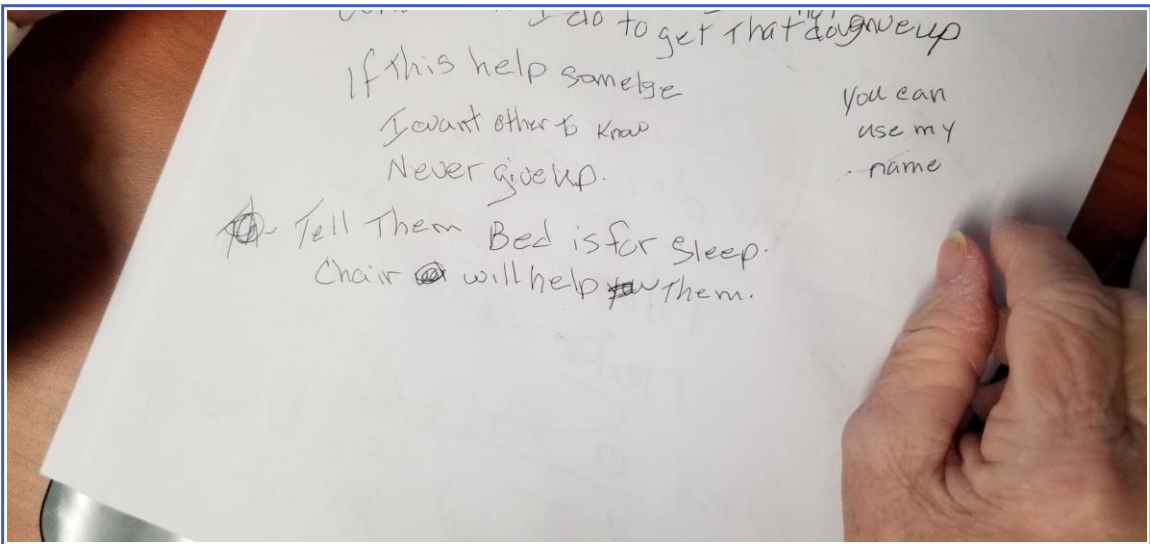 I do to get That
If This help somelge
I want other to Know
Never give up.
you can
use my
name
Tell Them Bed is for Sleep.
Chair will help Them.